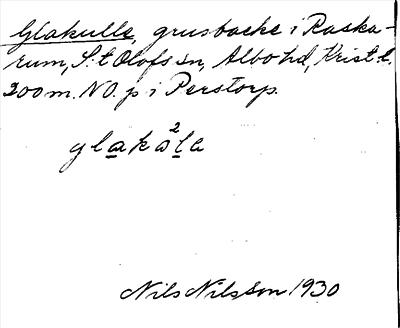 Glakulle, grusbacke i Raska-
rum, S:t Olofs sn, Albo hd, Krist. l,
200 m. NO. p i Perstorp.
glaka²la
Nils Nilsson 1930